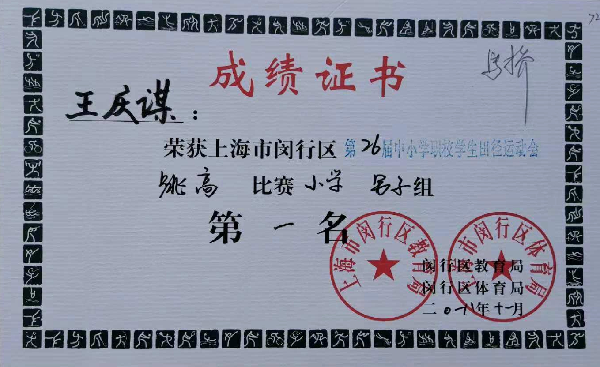 马桥
成绩证书
王庆谋：
荣获上海市闵行区 第26届中小学职校学生田径运动会
跳高 比赛 小学 男子组
第一名
上海市闵行区教育局
上海市闵行区体育局
闵行区教育局
闵行区体育局
二〇一八年十一月